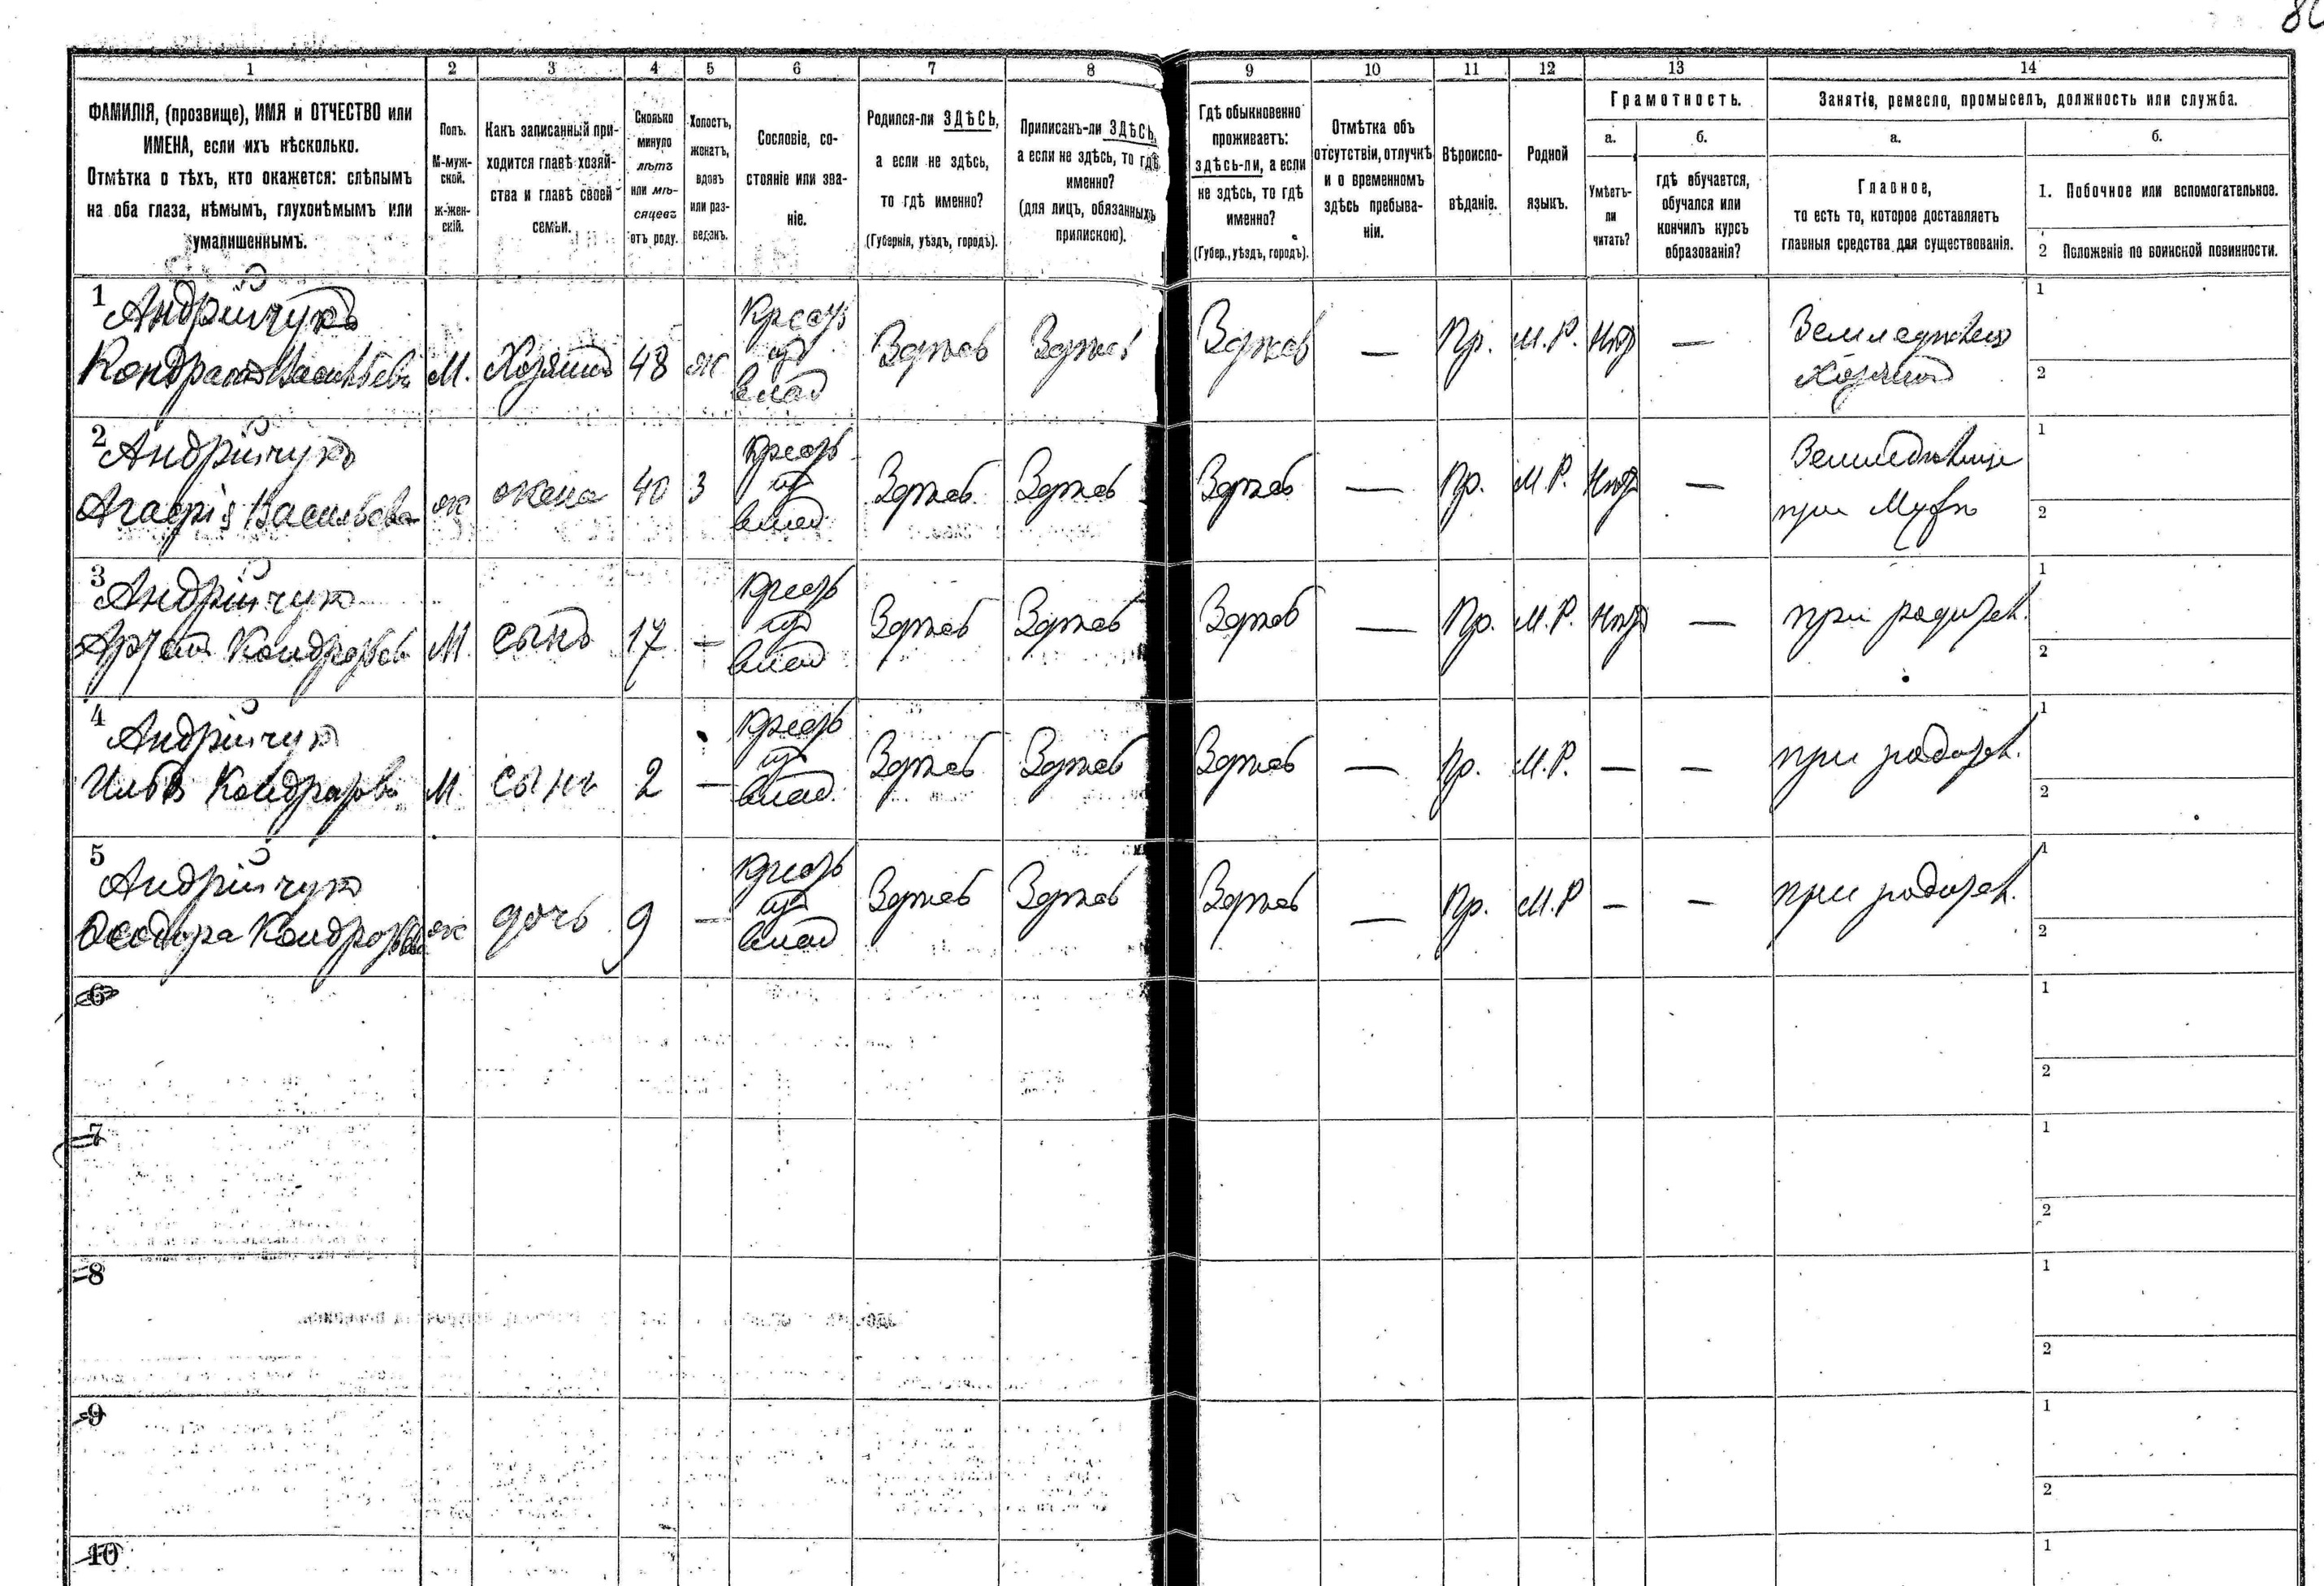 80
1 2 3 4 5 6 7 8 9 10 11 12 13 14
ФАМИЛІЯ, (прозвище), ИМЯ и ОТЧЕСТВО или
ИМЕНА, если ихъ нѣсколько.
Отмѣтка о тѣхъ, кто окажется: слѣпымъ
на оба глаза, нѣмымъ, глухонѣмымъ или
умалишеннымъ.
Полъ.
М-муж-
ской.
Ж-жен-
скій.
Какъ записанный при-
ходится главѣ хозяй-
ства и главѣ своей
семьи.
Сколько
минуло
лѣтъ
или мѣ-
сяцевъ
отъ роду.
Холостъ,
женатъ,
вдовъ
или раз-
веденъ.
Сословіе, со-
стояніе или зва-
ніе.
Родился-ли ЗДѢСЬ,
а если не здѣсь,
то гдѣ именно?
(Губернія, уѣздъ, городъ).
Приписанъ-ли ЗДѢСЬ,
а если не здѣсь, то гдѣ
именно?
(для лицъ, обязанныхъ
припискою).
Гдѣ обыкновенно
проживаетъ:
здѣсь-ли, а если
не здѣсь, то гдѣ
именно?
(Губер., уѣздъ, городъ).
Отмѣтка объ
отсутствіи, отлучкѣ
и о временномъ
здѣсь пребыва-
ніи.
Вѣроиспо-
вѣданіе.
Родной
языкъ.
Грамотность.
а.
Умѣетъ-
ли
читать?
б.
гдѣ обучается,
обучался или
кончилъ курсъ
образованія?
Занятія, ремесло, промыселъ, должность или служба.
а.
Главное,
то есть то, которое доставляетъ
главныя средства для существованія.
б.
1. Побочное или вспомогательное.
2 Положеніе по воинской повинности.
1 Андрійчукъ
Кондратъ Васильевъ М. Хозяинъ 48 ж
Крест
из
влад
Здѣсь Здѣсь Здѣсь — Пр. М.Р. Нѣт —
Земледѣлец
Хозяинъ
1
2
2 Андрійчукъ
Агафія Васильева ж жена 40 З
Крест
из
влад
Здѣсь Здѣсь Здѣсь — Пр. М.Р. Нѣт —
при Мужѣ
1
2
3 Андрійчук
Кондратьев М. сынъ 17 —
Крест
из
влад
Здѣсь Здѣсь Здѣсь — Пр. М.Р. Нѣт —
при родител.
1
2
4 Андрійчук
Илья Кондратов М. сынъ 2 —
Крест
из
влад.
Здѣсь Здѣсь Здѣсь — Пр. М.Р. — —
при родител.
1
2
5 Андрійчук
Ѳеодора Кондратьева ж дочь 9 —
Крест
из
влад
Здѣсь Здѣсь Здѣсь — Пр. М.Р — —
при родител.
1
2
6
1
2
7
1
2
8
1
2
9
1
2
10
1